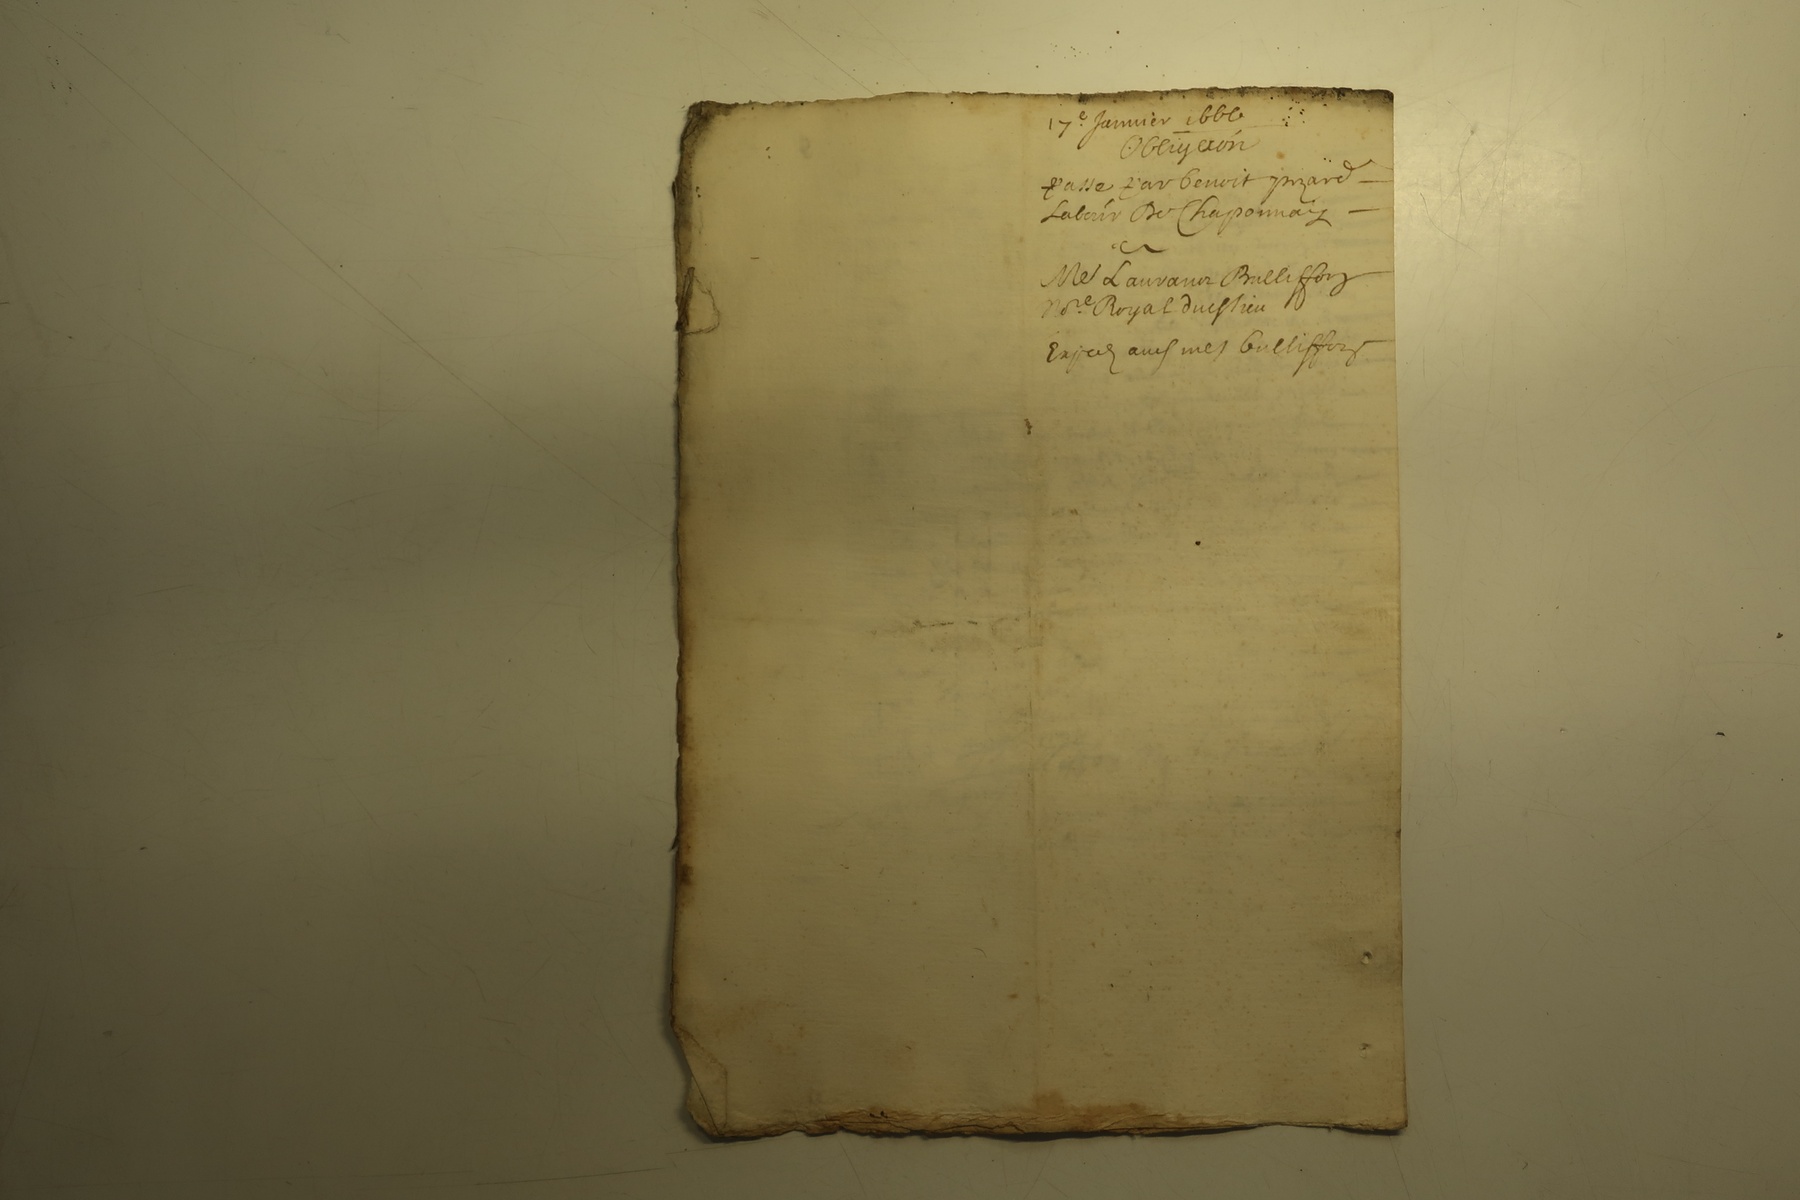 17e Janvier 1666
Obligaon
passe par benoit
Labour De Chaponnay
a
Me Lauranct Bulliffon
Nore Royal dud lieu
Exped aud me bulliffon